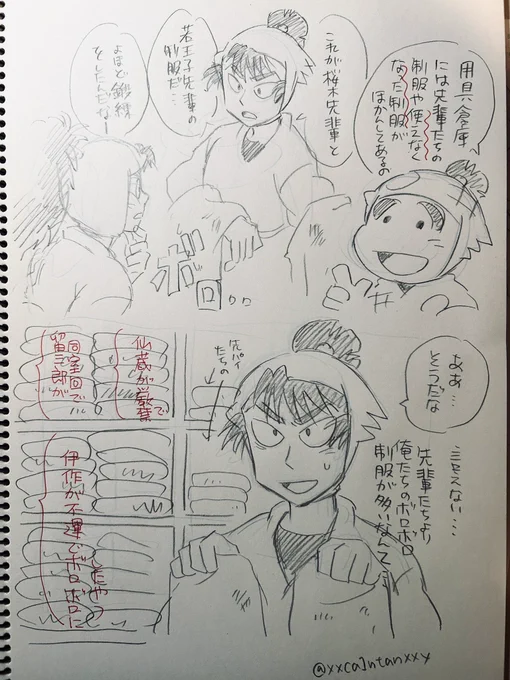 用具倉庫
には先輩たちの
制服や使えなく
なった制服が
ほかんしてあるの
これが桜木先輩と
若王子先輩の
制服だ…
よほど鍛練
をしたんだなー
ボロ
ボロ
ああ…
そうだな
言えない…
先輩たちより
俺たちのボロボロ
制服が多いなんて…
先パイ
たちの
仙蔵が火薬で
同室回で
留三郎が
伊作が不運でボロボロに
したやつ
@xxca1ntanxxy